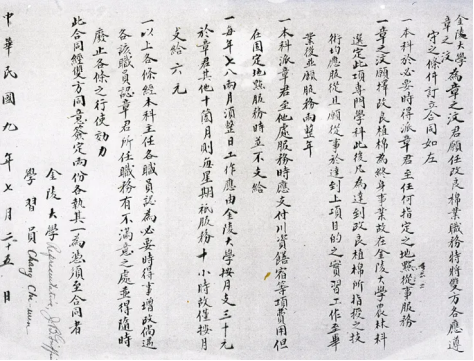 金陵大學
章之汶 為章之汶君願任改良棉業職務特將雙方各應遵
守之條件訂立合同如左
一本科於必要時得派章君至任何指定之地點從事服務
一章之汶願將改良植棉為終身事業故在金陵大學農林科
選定此項專門學科此後凡為達到改良植棉所指授之技
術均應服從且願從事於達到上項目的之實習工作至畢
業後並願服務兩整年
一本科派章君至他處服務時應支付川資饍宿等項費用但
在固定地點服務時並不支給
一每年七八兩月須整日工作應由金陵大學按月支三十元
於章君其他十箇月則每星期祇服務十小時故僅按月
支給六元
一以上各條經本科主任各職員認為必要時得事增改倘遇
各該職員認章君所任職務有不滿意之處並得隨時
廢止各條之行使効力
此合同經雙方同意簽定兩份各執其一為憑須至合同者
金陵大學 Representative
學習員 Chang Chi-wen
中華民國九年七月二十五日